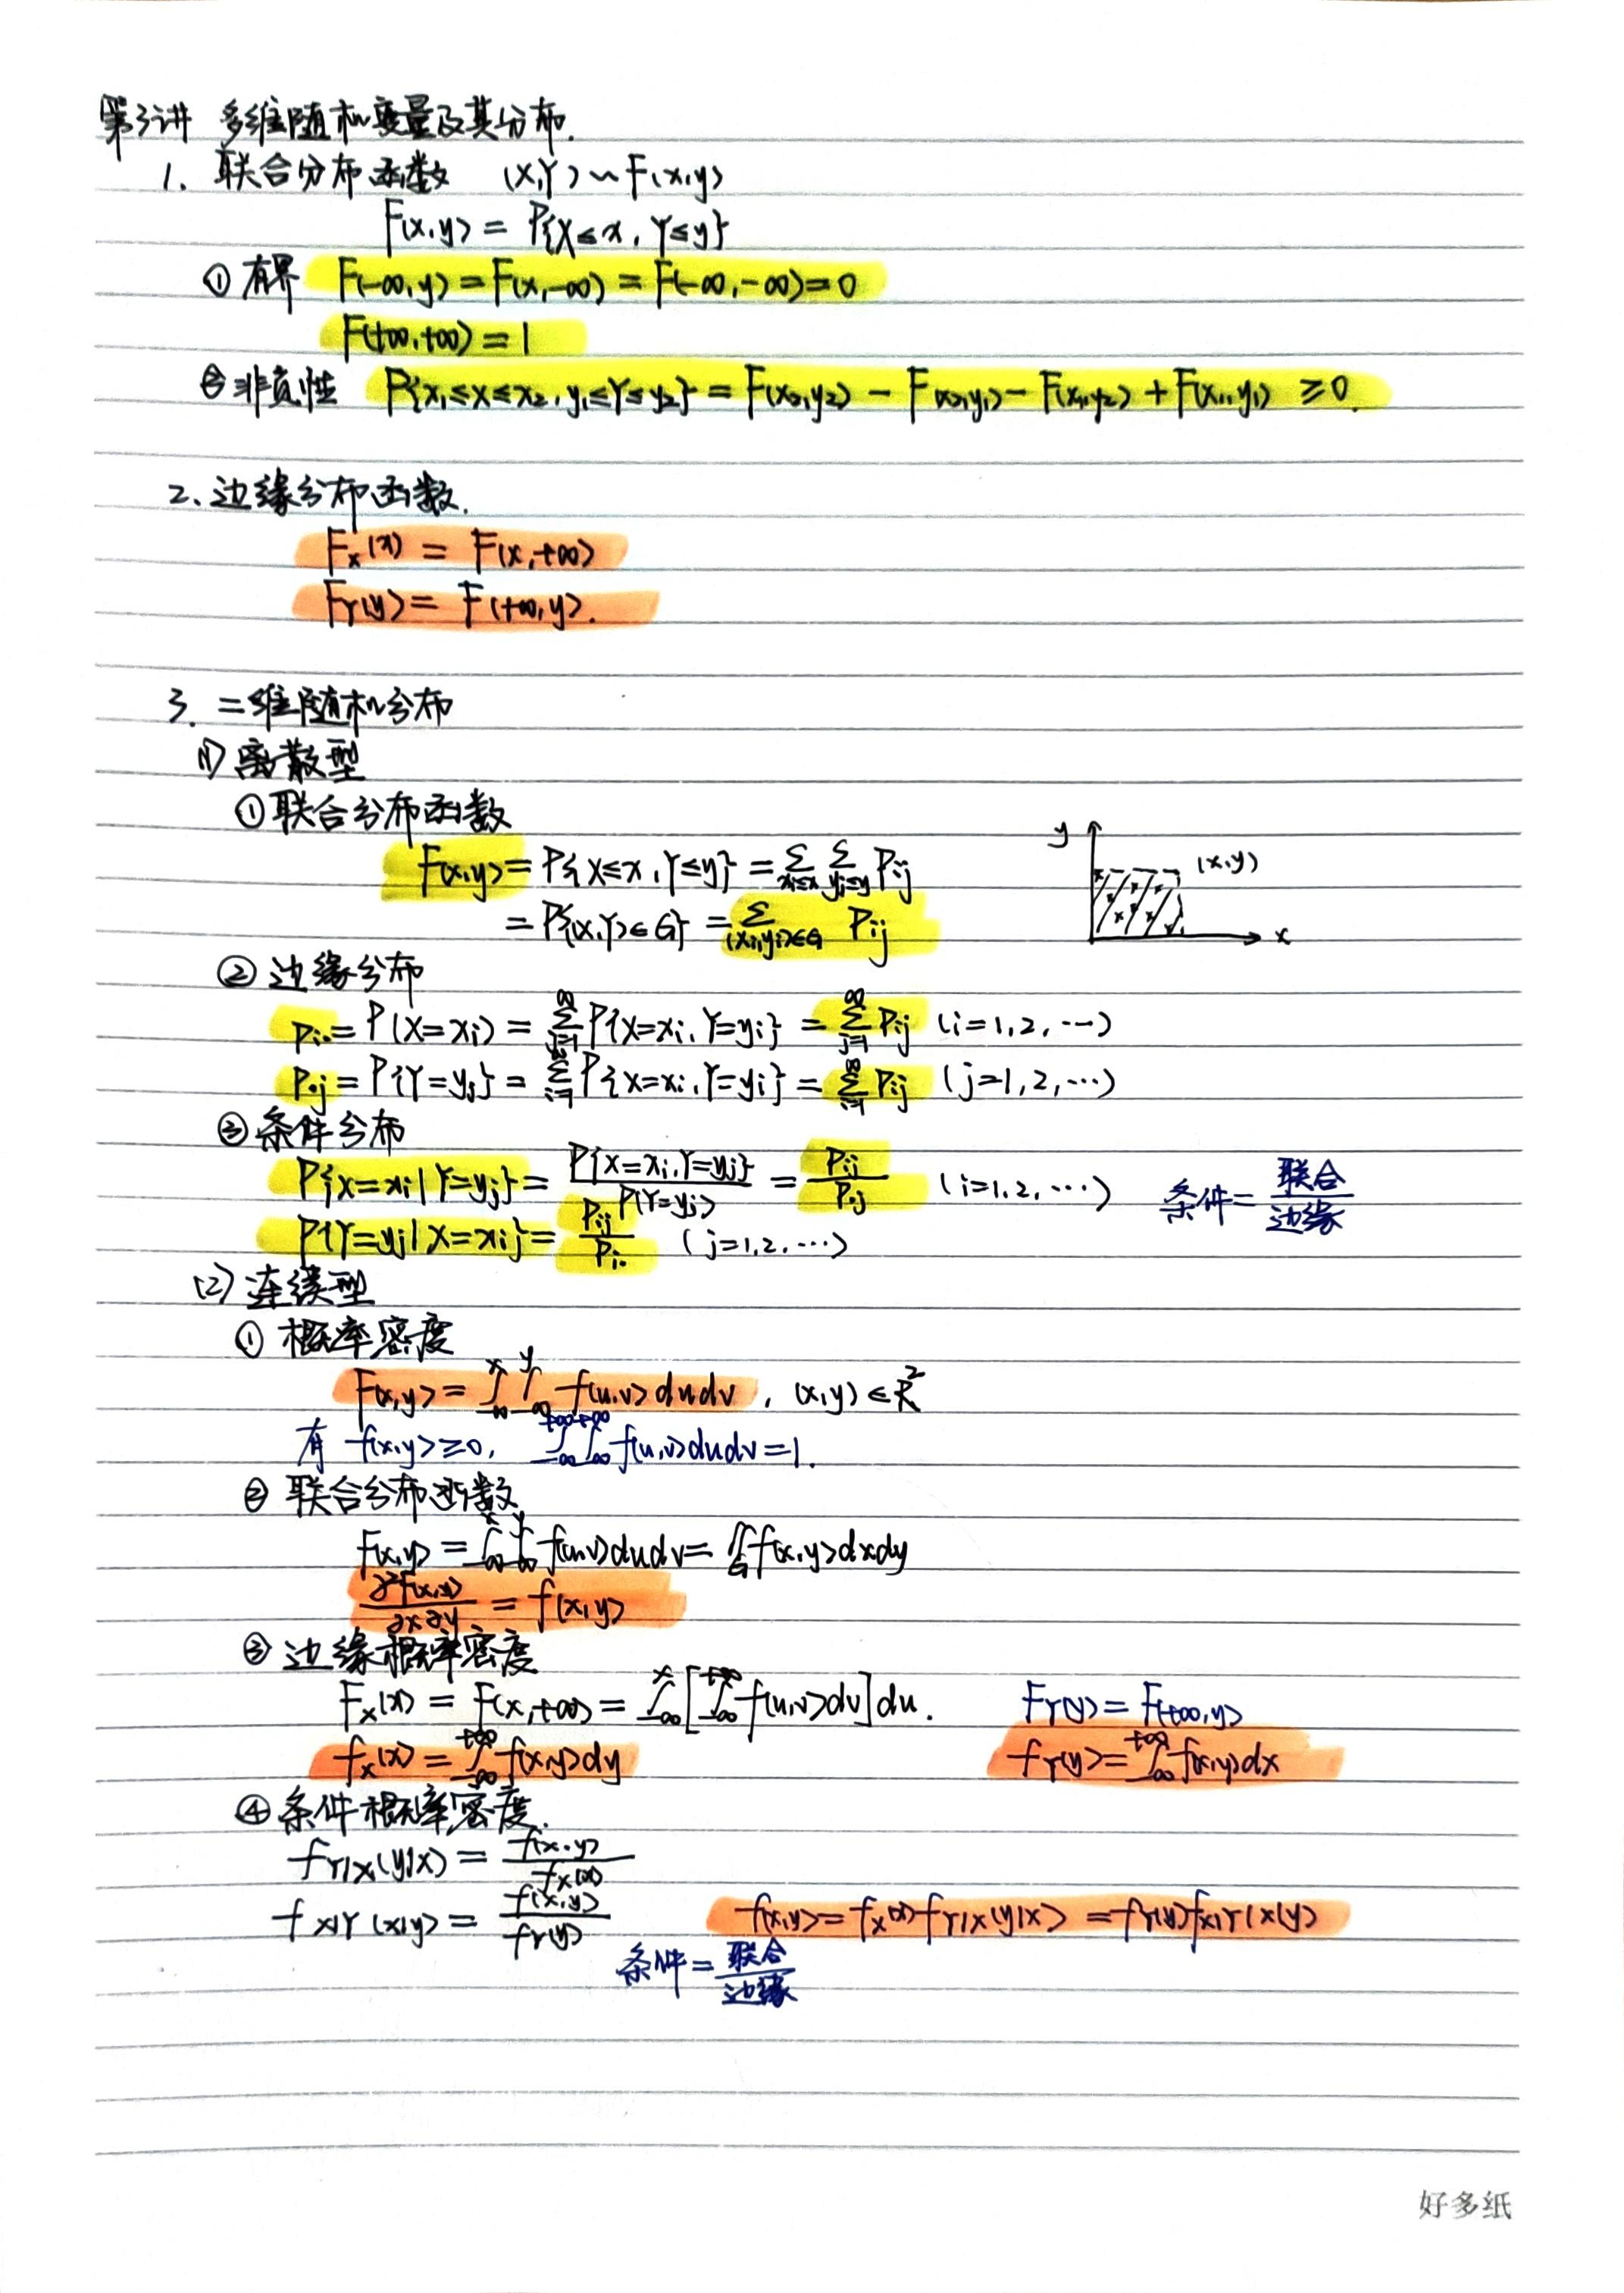 第3讲 多维随机变量及其分布.
1. 联合分布函数 (X,Y)~F(x,y)
F(x,y) = P{X≤x, Y≤y}
① 有界 F(-∞,y)=F(x,-∞)=F(-∞,-∞)=0
F(+∞,+∞)=1
② 非负性 P{x₁≤X≤x₂, y₁≤Y≤y₂} = F(x₂,y₂) - F(x₂,y₁) - F(x₁,y₂) + F(x₁,y₁) ≥0.
2. 边缘分布函数.
Fx(x) = F(x,+∞)
FY(y) = F(+∞,y).
3. 二维随机分布
(1) 离散型
① 联合分布函数
F(x,y) = P{X≤x, Y≤y} = ∑_{xi≤x} ∑_{yj≤y} Pij
= P{(X,Y)∈G} = ∑_{(xi,yj)∈G} Pij
y (x,y) x
② 边缘分布
Pi. = P(X=xi) = ∑_{j=1}^{∞} P{X=xi, Y=yj} = ∑_{j=1}^{∞} Pij (i=1,2,…)
P.j = P{Y=yj} = ∑_{i=1}^{∞} P{X=xi, Y=yj} = ∑_{i=1}^{∞} Pij (j=1,2,…)
③ 条件分布
P{X=xi|Y=yj} = P{X=xi, Y=yj}/P(Y=yj) = Pij/P.j (i=1,2,…) 条件=联合/边缘
P{Y=yj|X=xi} = Pij/Pi. (j=1,2,…)
(2) 连续型
① 概率密度
F(x,y) = ∫_{-∞}^{x} ∫_{-∞}^{y} f(u,v)dudv, (x,y)∈R²
有 f(x,y)≥0, ∫_{-∞}^{+∞} ∫_{-∞}^{+∞} f(u,v)dudv=1.
② 联合分布函数
F(x,y) = ∫_{-∞}^{x} ∫_{-∞}^{y} f(u,v)dudv = ∬_G f(x,y)dxdy
∂²F(x,y)/∂x∂y = f(x,y)
③ 边缘概率密度
Fx(x) = F(x,+∞) = ∫_{-∞}^{x} [∫_{-∞}^{+∞} f(u,v)dv]du. FY(y) = F(+∞,y)
fx(x) = ∫_{-∞}^{+∞} f(x,y)dy fY(y) = ∫_{-∞}^{+∞} f(x,y)dx
④ 条件概率密度.
fY|X(y|x) = f(x,y)/fx(x)
fX|Y(x|y) = f(x,y)/fY(y) f(x,y) = fx(x)fY|X(y|x) = fY(y)fX|Y(x|y)
条件=联合/边缘
好多纸